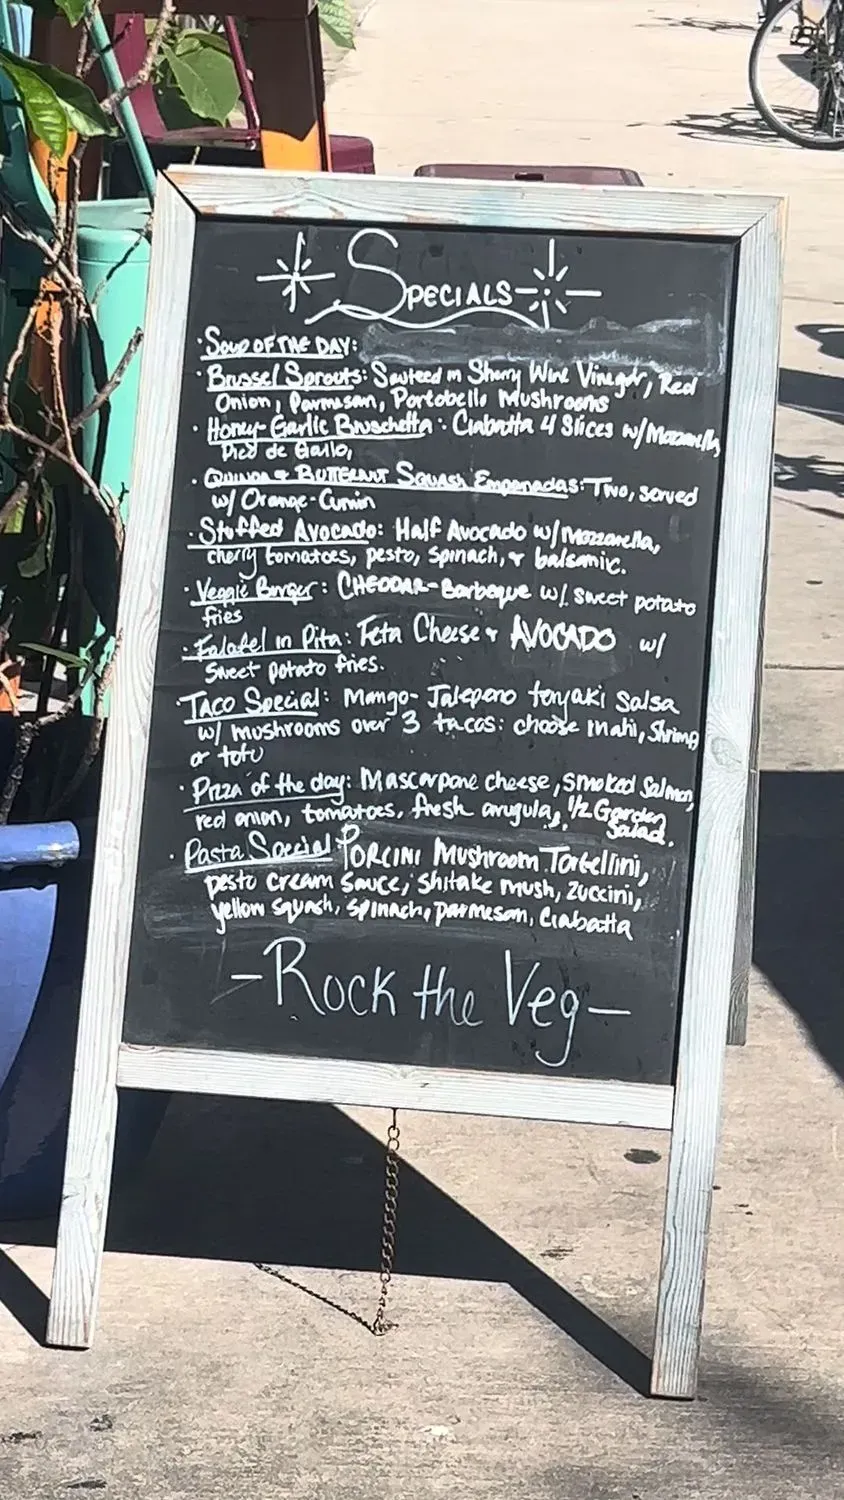 Specials
· Soup of the Day:
· Brussel Sprouts: Sauteed in Sherry Wine Vinegar, Red
Onion, Parmesan, Portobello Mushrooms
· Honey-Garlic Bruschetta: Ciabatta 4 Slices w/Mozzarella,
Pico de Gallo,
· Quinoa & Butternut Squash Empanadas: Two, served
w/ Orange-Cumin
· Stuffed Avocado: Half Avocado w/mozzarella,
cherry tomatoes, pesto, spinach, & balsamic.
· Veggie Burger: CHEDDAR-Barbeque w/ sweet potato
fries
· Falafel in Pita: Feta Cheese & AVOCADO w/
Sweet potato fries.
· Taco Special: Mango- Jalepeno teryaki Salsa
w/ mushrooms over 3 tacos: choose mahi, Shrimp
or tofu
· Pizza of the day: Mascarpone cheese, smoked Salmon,
red onion, tomatoes, fresh arugula, 1/2 Garden
Salad.
· Pasta Special: PORCINI Mushroom Tortellini,
pesto cream sauce, shitake mush, zuccini,
yellow squash, spinach, parmesan, ciabatta
-Rock the Veg-